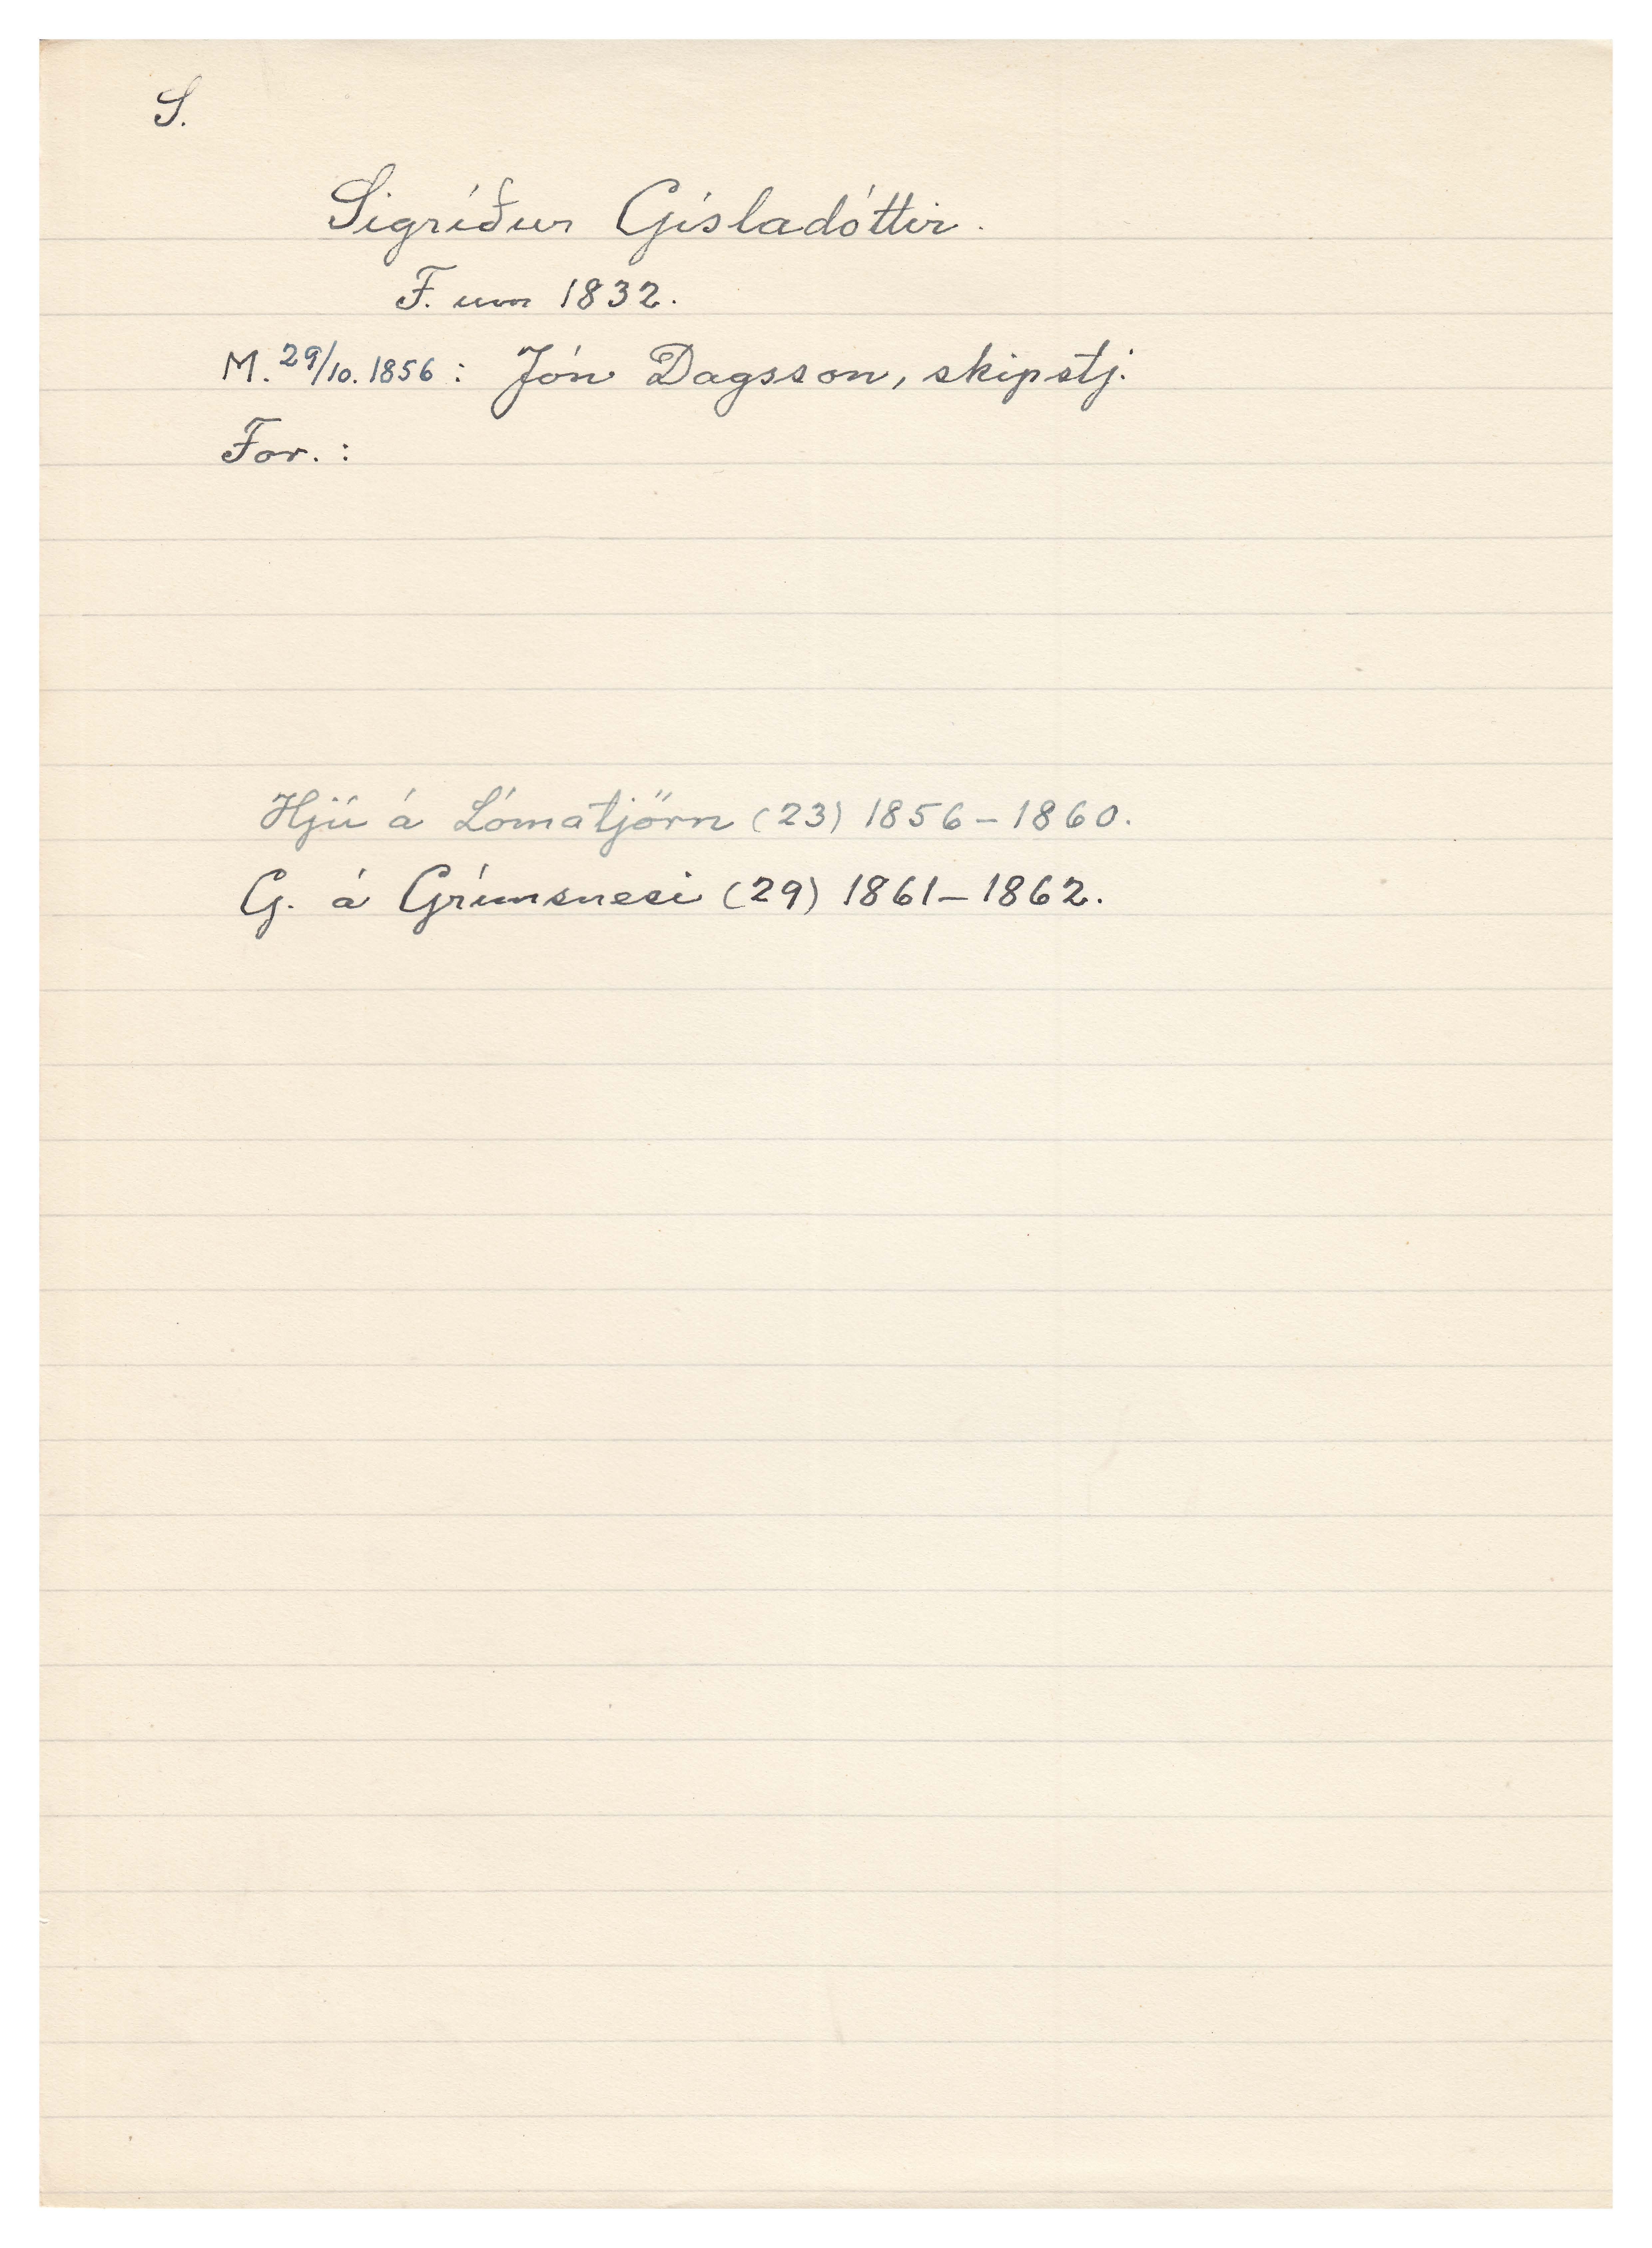 S.
Sigríður Gísladóttir.
F. um 1832.
M. 29/10. 1856: Jón Dagsson, skipstj.
For.:
Hjú á Lómatjörn (23) 1856-1860.
G. á Grímsnesi (29) 1861-1862.